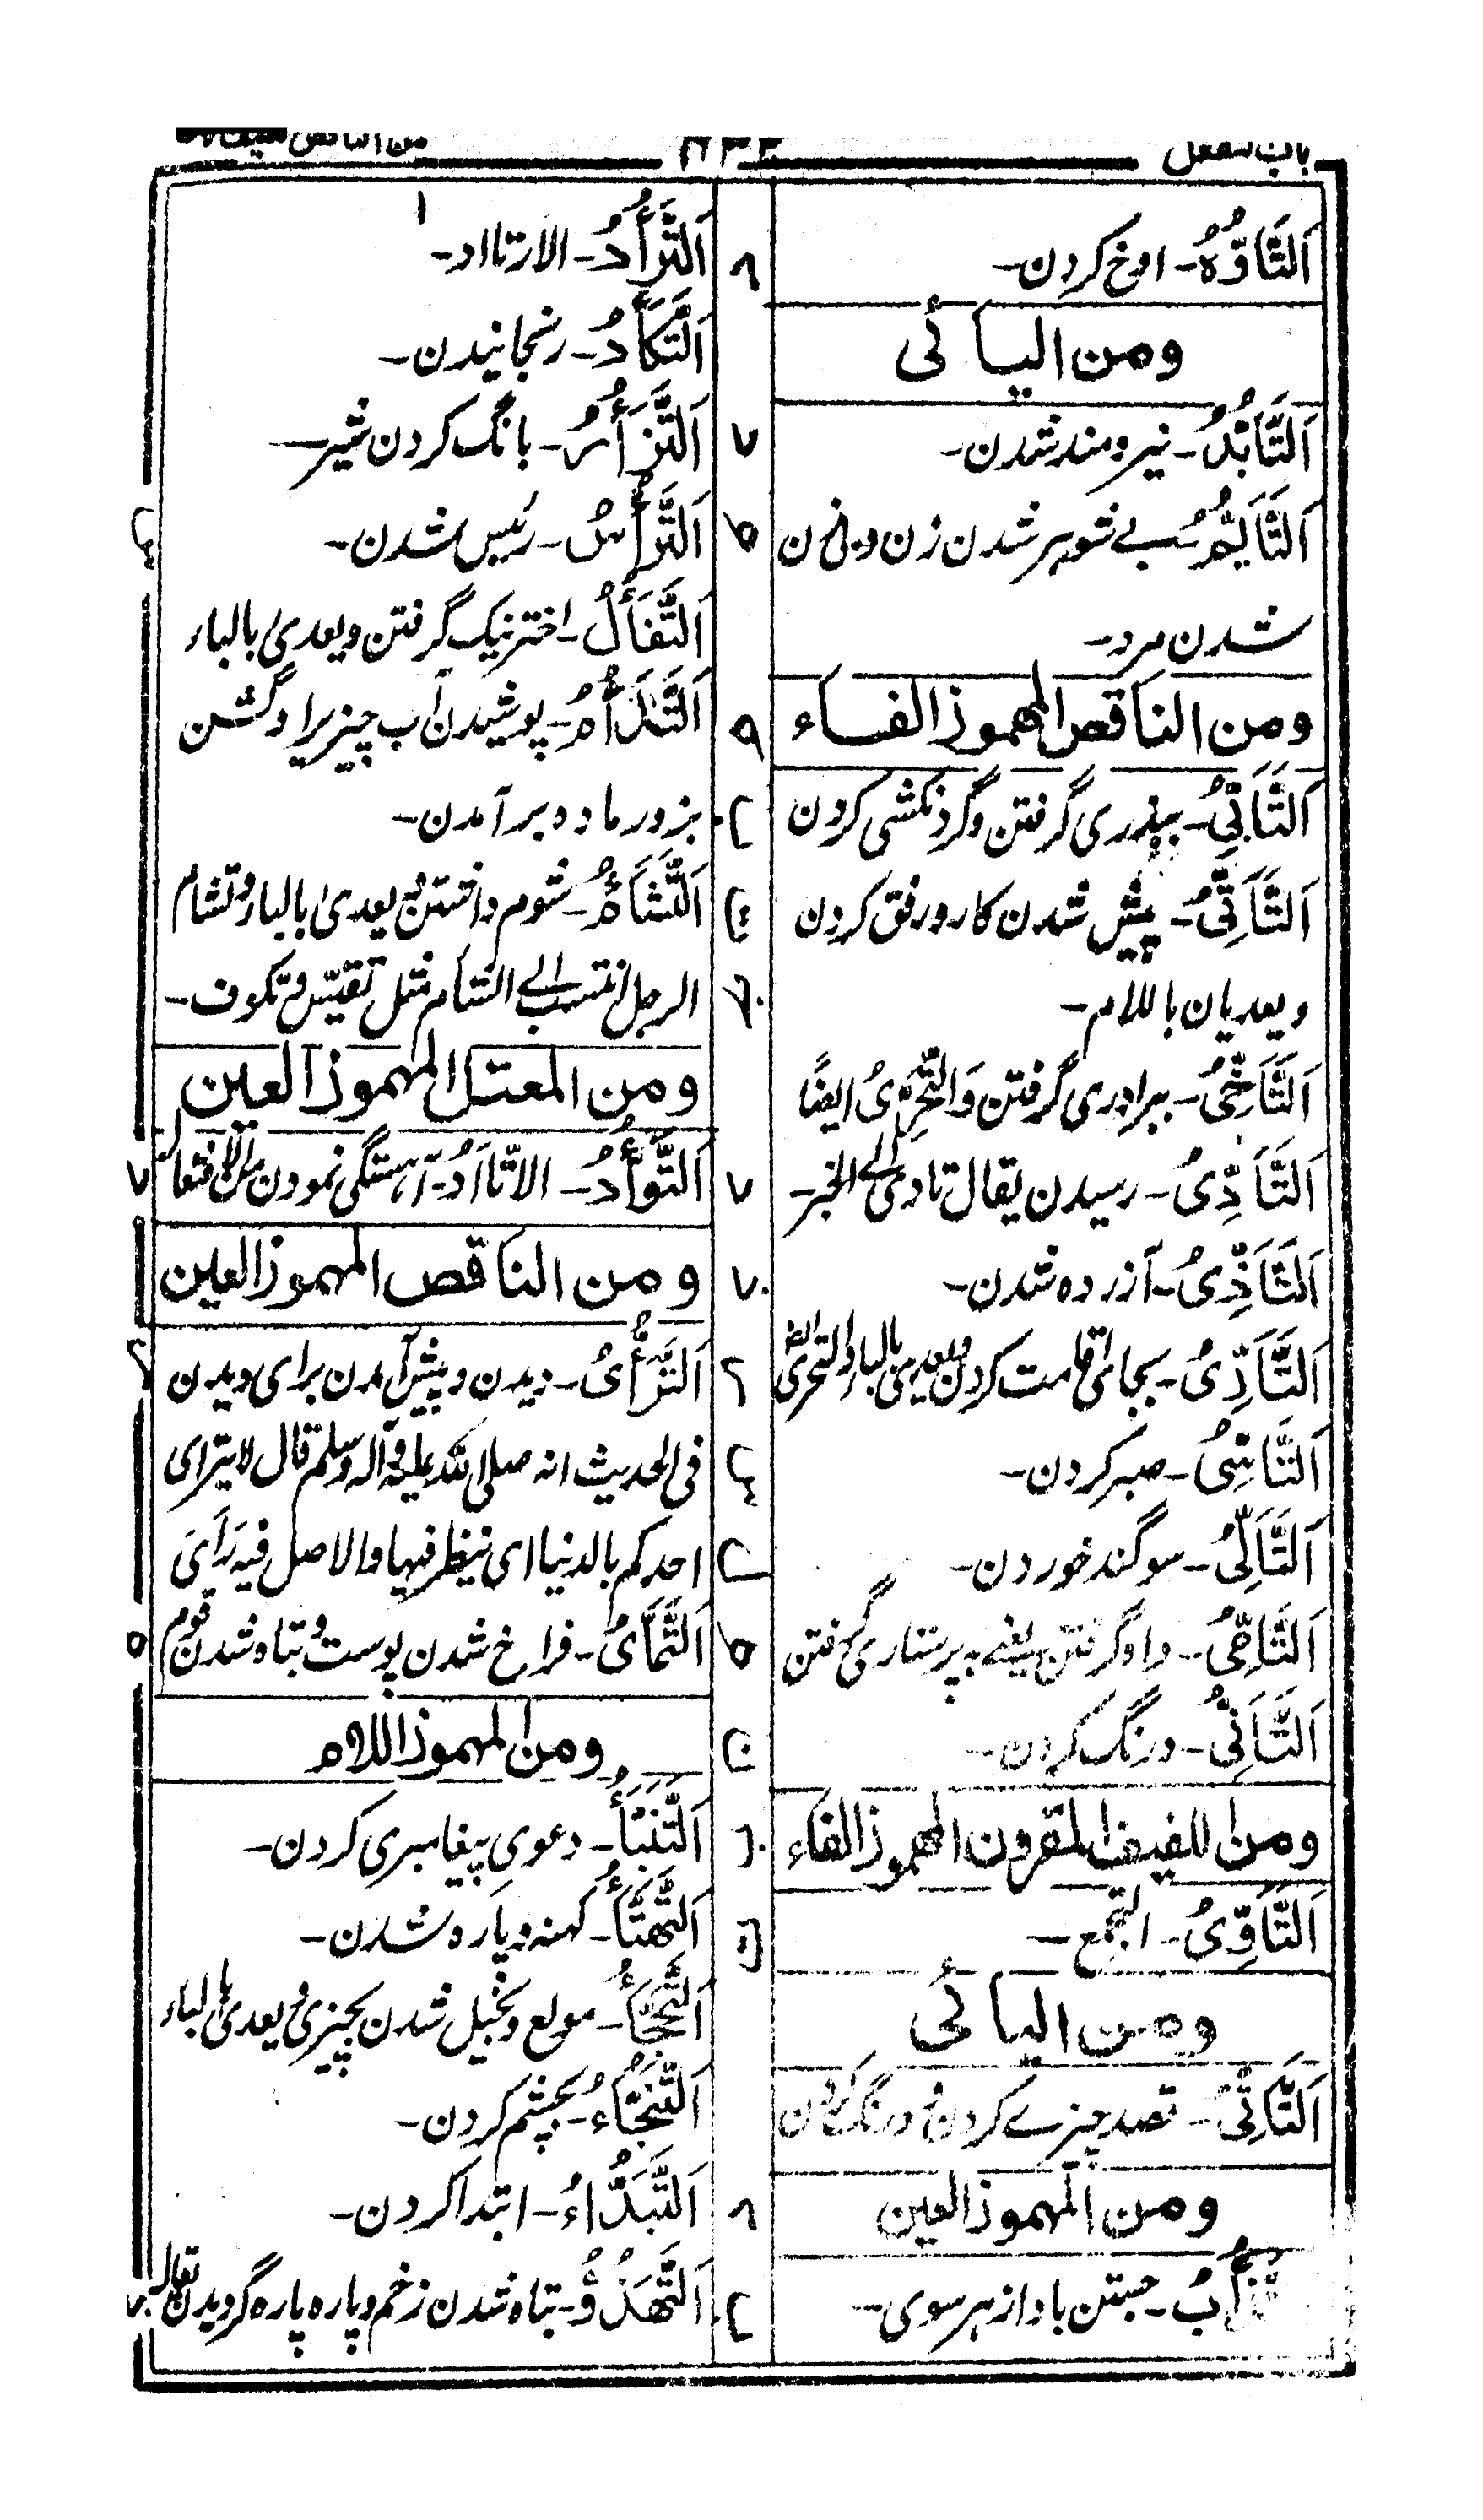 باب تفعل
من الناقص
اَلتَّاَوُّهُ۔ اوخ کردن۔
ومن الیائی
اَلتَّاَیُّدُ۔ نیرومند شدن۔
اَلتَّاَیُّمُ۔ بے شوہر شدن زن و بی زن
شدن مرد۔
ومن الناقص المهموز الفاء
اَلتَّاَبِّیُ۔ بپدری گرفتن و گردنکشی کردن
اَلتَّاَتِّیُ۔ پیش شدن کار و رفق کردن
ویعدیان باللام۔
اَلتَّاَخِّیُ۔ ببرادری گرفتن وَالتَّحَرِّیُ ایضًا
اَلتَّاَدِّیُ۔ رسیدن یقال تادی الی الخبر۔
اَلتَّاَذِّیُ۔ آزرده شدن۔
اَلتَّاَرِّیُ۔ بجای اقامت کردن ویعدی بالباء والتحری ایضا
اَلتَّاَسِّیُ۔ صبر کردن۔
اَلتَّاَلِّیُ۔ سوگند خوردن۔
اَلتَّاَمِّیُ۔ داه گرفتن یعنے به پرستاری گرفتن
اَلتَّاَنِّیُ۔ درنگ کردن۔
ومن اللفیف المقرون المهموز الفاء
اَلتَّاَوِّیُ۔ التجمع۔
ومن الیائی
اَلتَّاَیِّیُ۔ قصد چیزے کردن و درنگ کردن
ومن المهموز العین
جستن باد از هر سوی۔
اَلتَّرَأُّدُ۔ الارتااد۔
اَلتَّکَأُّدُ۔ رنجانیدن۔
اَلتَّزَأُّرُ۔ بانگ کردن شیر۔
اَلتَّرَأُّسُ۔ رئیس شدن۔
اَلتَّفَأُّلُ۔ اختر نیک گرفتن ویعدیٰ بالباء
اَلتَّدَأُّمُ۔ پوشیدن آب چیزیرا و گشن
بزور ماده برآمدن۔
اَلتَّشَأُّمُ۔ شوم داشتن ویعدیٰ بالباء وتشام
الرجل انتسب الی الشام مثل تقیّس وتکوف۔
ومن المعتل المهموز العین
اَلتَّوَأُّدُ۔ الاتّااَدُ۔ آہستگی نمودن من الافتعال
ومن الناقص المهموز العین
اَلتَّرَأِّیُ۔ دیدن و پیش آمدن برای دیدن
فی الحدیث انه صلی الله علیه وآله وسلم قال لا یترای
احدکم بالدنیا ای ینظر فیها والاصل فیه یَرَاَیَ
اَلتَّمَأِّیُ۔ فراخ شدن پوست و تباه شدن قوم
ومن المهموز اللام
اَلتَّنَبُّأُ۔ دعوی پیغامبری کردن۔
اَلتَّهَتُّأُ۔ کهنه و پاره شدن۔
اَلتَّحَجُّأُ۔ مولع و بخیل شدن بچیزی ویعدیٰ بالباء
اَلتَّنَجُّاءُ۔ بچشم کردن۔
اَلتَّبَدُّاءُ۔ ابتدا کردن۔
اَلتَّهَذُّؤُ۔ تباه شدن زخم و پاره پاره گردیدن یقال